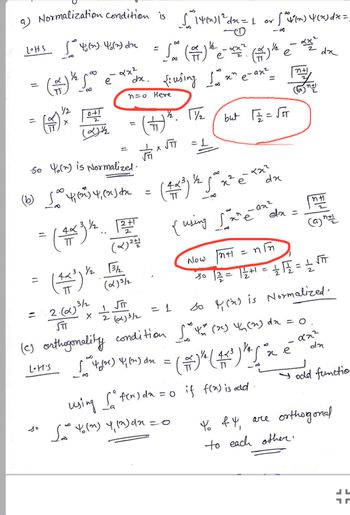 a) Normalization condition is ∫_{-∞}^{∞} |ψ(x)|² dx = 1 or ∫_{-∞}^{∞} ψ*(x) ψ(x) dx =
—①
L.H.S ∫_{-∞}^{∞} ψ₀*(x) ψ₀(x) dx = ∫_{-∞}^{∞} (α/π)^{1/4} e^{-αx²/2} . (α/π)^{1/4} e^{-αx²/2} dx
= (α/π)^{1/2} ∫_{-∞}^{∞} e^{-αx²} dx. {using ∫_{-∞}^{∞} xⁿ e^{-ax²} = Γ((n+1)/2) / (a)^{(n+1)/2}
n=0 Here
= (α/π)^{1/2} × Γ((0+1)/2) / (α)^{1/2} = (1/π)^{1/2} . Γ(1/2) but Γ(1/2) = √π
= 1/√π × √π = 1
so ψ₀(x) is Normalized.
(b) ∫_{-∞}^{∞} ψ₁*(x) ψ₁(x) dx = (4α³/π)^{1/2} ∫_{-∞}^{∞} x² e^{-αx²} dx
= (4α³/π)^{1/2} . Γ((2+1)/2) / (α)^{(2+1)/2} {using ∫_{-∞}^{∞} xⁿ e^{-ax²} dx = Γ((n+1)/2) / (a)^{(n+1)/2}
Now Γ(n+1) = n Γn
= (4α³/π)^{1/2} Γ(3/2) / (α)^{3/2} so Γ(3/2) = Γ(1/2+1) = 1/2 Γ(1/2) = 1/2 √π
= 2·(α)^{3/2}/√π × 1/2 √π/(α)^{3/2} = 1 so ψ₁(x) is Normalized.
(c) orthogonality condition ∫_{-∞}^{∞} ψₘ*(x) ψₙ(x) dx = 0.
L.H.S ∫_{-∞}^{∞} ψ₀*(x) ψ₁(x) dx = (α/π)^{1/4} (4α³/π)^{1/4} ∫_{-∞}^{∞} x e^{-αx²} dx
→ odd functio
using ∫_{-a}^{a} f(x) dx = 0 if f(x) is odd
so ∫_{-∞}^{∞} ψ₀*(x) ψ₁(x) dx = 0 ψ₀ & ψ₁ are orthogonal
to each other.